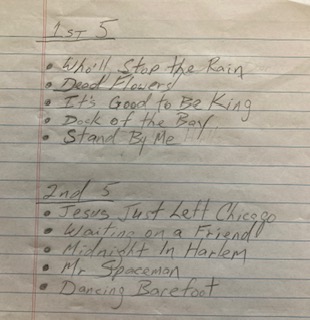 1ST 5
• Who'll Stop the Rain
• Dead Flowers
• It's Good to Be King
• Dock of the Bay
• Stand By Me
2nd 5
• Jesus Just Left Chicago
• Waiting on a Friend
• Midnight In Harlem
• Mr Spaceman
• Dancing Barefoot